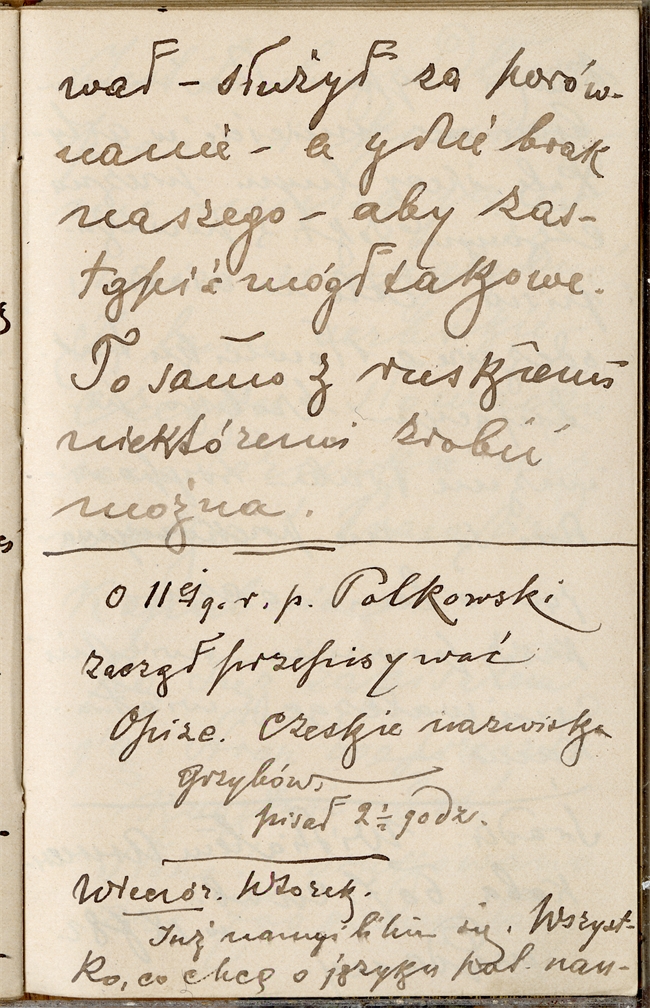 wał – służył za porów-
nanie – a gdzie brak
naszego – aby zas-
tąpić mógł takowe.
To samo z ruskiemi
niektóremi zrobić
można.
O 11ej g. r. p. Polkowski
zaczął przepisywać
Opize. Czeskie nazwiska
grzybów.
pisał 2½ godz.
Wieczór. Wtorek.
Już namyśliłem się. Wszyst-
ko, co chcę o języku pol. nau-